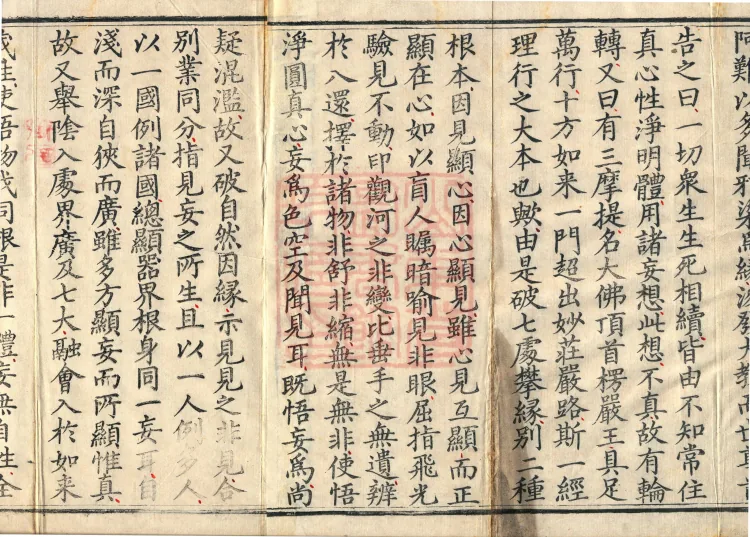 阿難以多聞邪染爲緣發大教而世尊
告之曰一切衆生生死相續皆由不知常住
真心性淨明體用諸妄想此想不真故有輪
轉又曰有三摩提名大佛頂首楞嚴王具足
萬行十方如来一門超出妙莊嚴路斯一經
理行之大本也歟由是破七處攀縁别二種
根本因見顯心因心顯見雖心見互顯而正
顯在心如以盲人矚暗喻見非眼屈指飛光
驗見不動印觀河之非變比垂手之無遺辨
於八還擇於諸物非舒非縮無是無非使悟
淨圓真心妄爲色空及聞見耳既悟妄爲尚
疑混濫故又破自然因縁示見見之非見合
别業同分指見妄之所生且以一人例多人
以一國例諸國總顯器界根身同一妄耳自
淺而深自狹而廣雖多方顯妄而所顯惟真
故又舉陰入處界廣及七大融會入於如来
藏性使悟物我同根是非一體妄無自性全